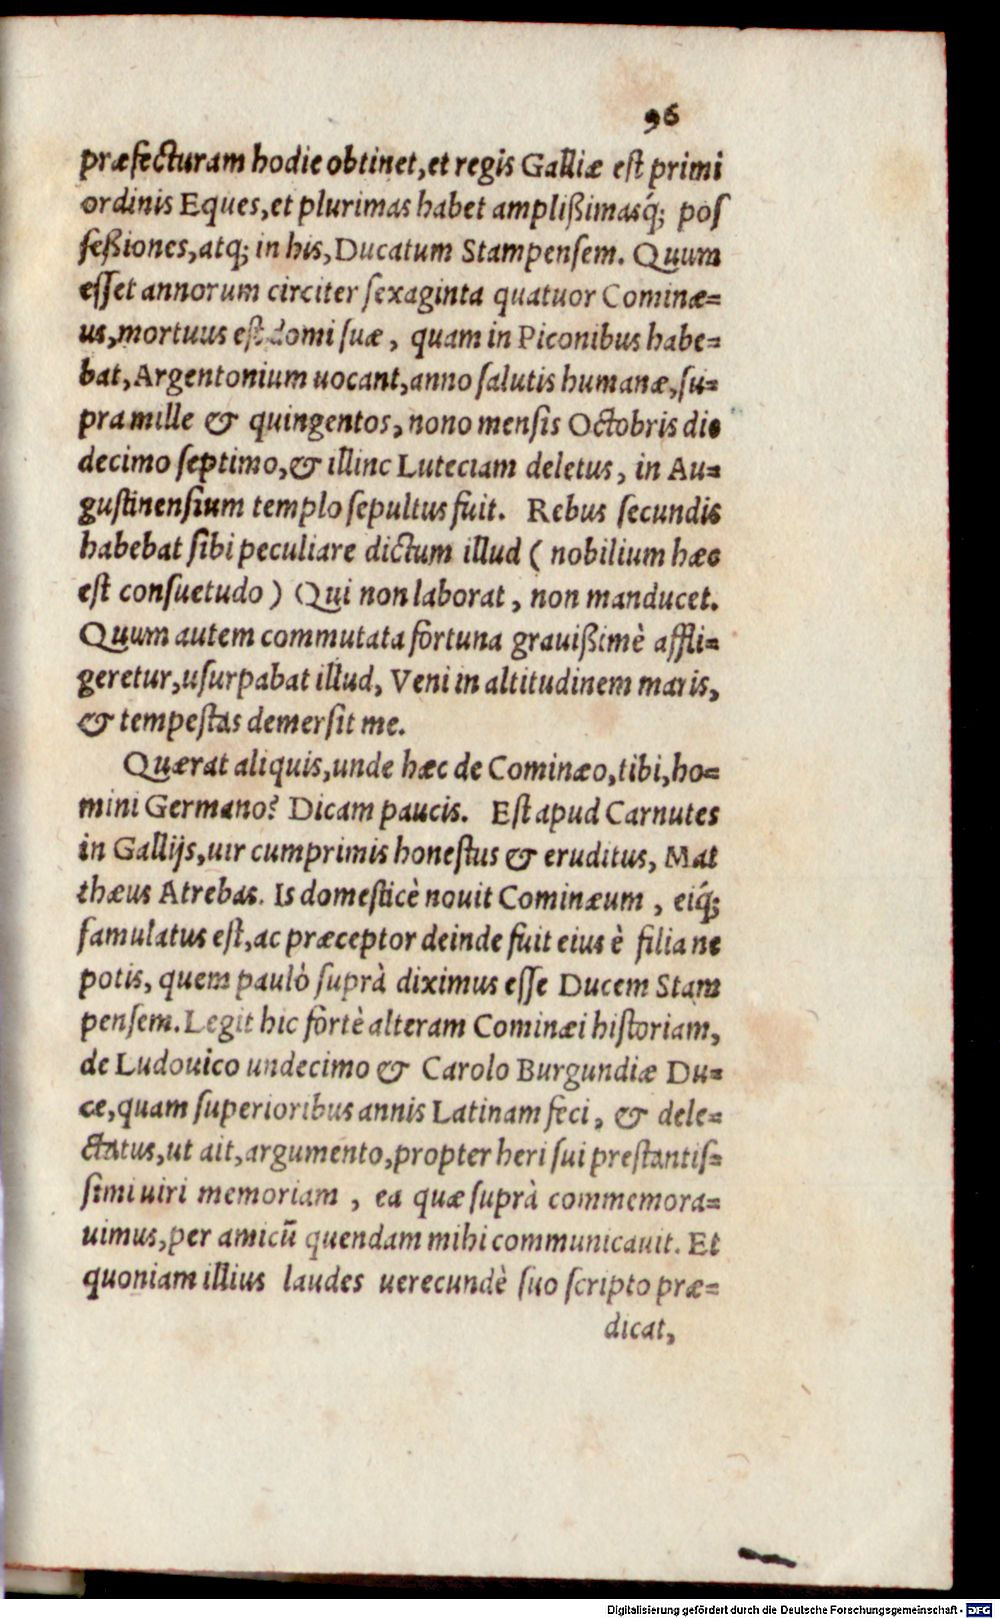 96
præfecturam hodie obtinet, et regis Galliæ est primi
ordinis Eques, et plurimas habet amplißimasq́; pos
seßiones, atq; in his, Ducatum Stampensem. Quum
esset annorum circiter sexaginta quatuor Cominæ=
us, mortuus est domi suæ, quam in Piconibus habe=
bat, Argentonium uocant, anno salutis humanæ, su=
pra mille & quingentos, nono mensis Octobris die
decimo septimo, & illinc Luteciam deletus, in Au=
gustinensium templo sepultus fuit. Rebus secundis
habebat sibi peculiare dictum illud ( nobilium hæc
est consuetudo ) Qui non laborat, non manducet.
Quum autem commutata fortuna grauißimè affli=
geretur, usurpabat illud, Veni in altitudinem maris,
& tempestas demersit me.
Quærat aliquis, unde hæc de Cominæo, tibi, ho=
mini Germano? Dicam paucis. Est apud Carnutes
in Gallijs, uir cumprimis honestus & eruditus, Mat
thæus Atrebas. Is domesticè nouit Cominæum, eiq́;
famulatus est, ac præceptor deinde fuit eius è filia ne
potis, quem paulò suprà diximus esse Ducem Stam
pensem. Legit hic fortè alteram Cominæi historiam,
de Ludouico undecimo & Carolo Burgundiæ Du=
ce, quam superioribus annis Latinam feci, & dele=
ctatus, ut ait, argumento, propter heri sui prestantis=
simi uiri memoriam, ea quæ suprà commemora=
uimus, per amicū quendam mihi communicauit. Et
quoniam illius laudes uerecundè suo scripto præ=
dicat,
Digitalisierung gefördert durch die Deutsche Forschungsgemeinschaft - DFG